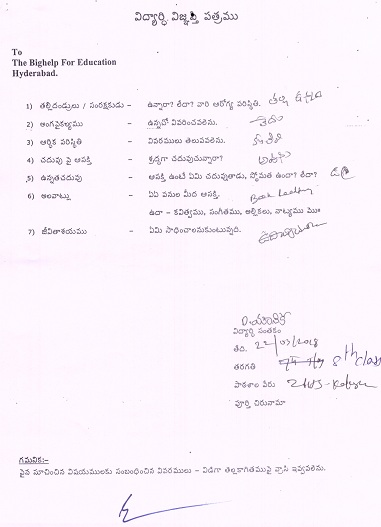 విద్యార్ధి విజ్ఞప్తి పత్రము
To
The Bighelp For Education
Hyderabad.
1) తల్లిదండ్రులు / సంరక్షకుడు - ఉన్నారా? లేదా? వారి ఆరోగ్య పరిస్థితి. తల్లి
2) అంగవైకల్యము - ఉన్నచో వివరించవలెను. లేదు
3) ఆర్థిక పరిస్థితి - వివరములు తెలుపవలెను.
4) చదువు పై ఆసక్తి - శ్రద్ధగా చదువుచున్నారా?
5) ఉన్నతచదువు - ఆసక్తి ఉంటే ఏమి చదువుతాడు, స్తోమత ఉందా? లేదా?
6) అలవాట్లు - ఏఏ పనుల మీద ఆసక్తి. Book
ఉదా - కవిత్వము, సంగీతము, అల్లికలు, నాట్యము మొ॥
7) జీవితాశయము - ఏమి సాధించాలనుకుంటున్నది.
విద్యార్థి సంతకం
తేది. 22/03/2018
తరగతి 8th class
పాఠశాల పేరు ZPHS-
పూర్తి చిరునామా
గమనిక:-
పైన సూచించిన విషయములకు సంబంధించిన వివరములు - విడిగా తెల్లకాగితముపై వ్రాసి ఇవ్వవలెను.